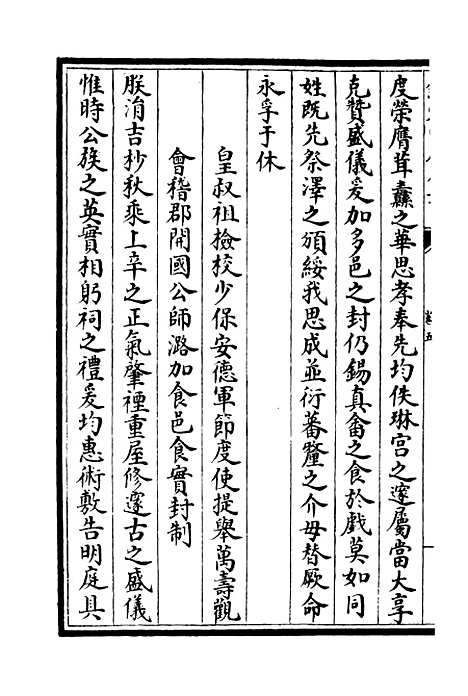 度榮膺茸纛之華思孝奉先均佚琳宮之邃屬當大享
克贊盛儀爰加多邑之封仍錫真畬之食於戲莫如同
姓既先祭澤之頒綏我思成並衍蕃釐之介毋替厥命
永孚于休
皇叔祖撿校少保安德軍節度使提舉萬壽觀
會稽郡開國公師潞加食邑食實封制
朕涓吉杪秋乘上辛之正氣肇禋重屋修邃古之盛儀
惟時公族之英實相躬祠之禮爰均惠術敷告明庭具